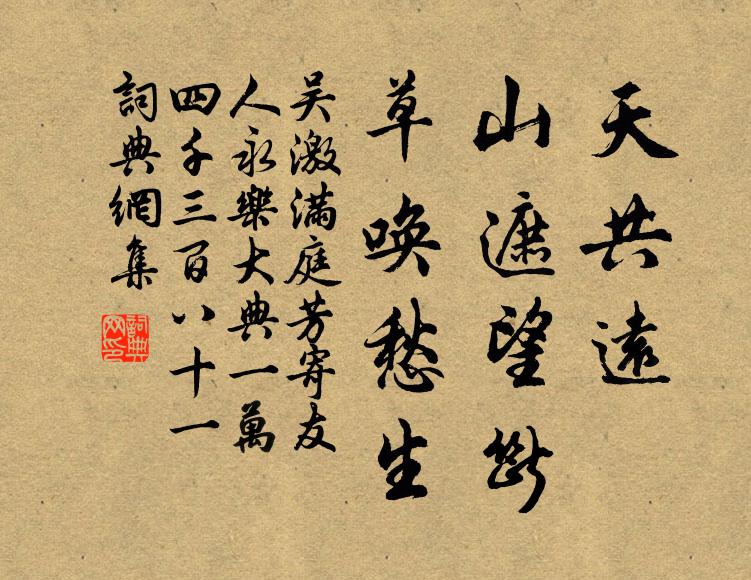 天共遠
山遮望斷
草喚愁生
吴激滿庭芳寄友
人永樂大典一萬
四千三百八十一
詞典網集
詞典
网印